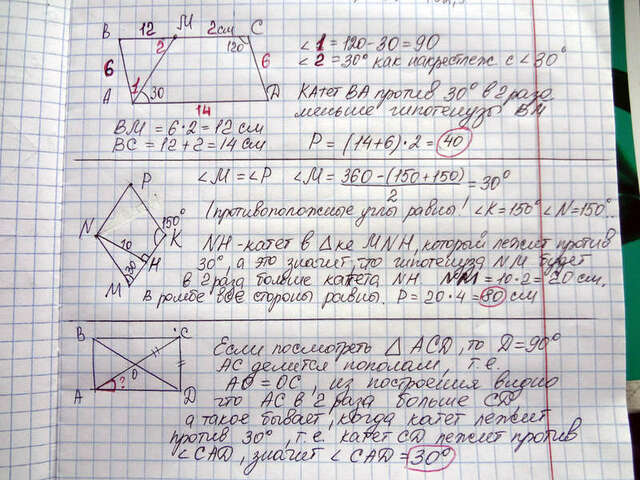 B 12 M 2см C
2 120
6 6
1 30
A 14 D
∠1 = 120-30 = 90
∠2 = 30° как накрестлеж. с ∠30°
Катет BA против 30° в 2 раза
меньше гипотенузы BM
BM = 6·2 = 12 см
BC = 12+2 = 14 см
P = (14+6)·2 = 40
P
N 150° K
10
30 H
M
∠M = ∠P ∠M = 360-(150+150) / 2 = 30°
(противоположные углы равны! ∠K=150° ∠N=150°.
NH-катет в Δке MNH, который лежит против
30°, а это значит, что гипотенуза NM будет
в 2 раза больше катета NH. NM = 10·2 = 20 см.
В ромбе все стороны равны. P = 20·4 = 80 см
B C
O
A ? D
Если посмотреть Δ ACD, то D=90°
AC делится пополам, т.е.
AO = OC, из построения видно
что AC в 2 раза больше CD,
а такое бывает, когда катет лежит
против 30°, т.е. катет CD лежит против
∠CAD, значит ∠CAD = 30°